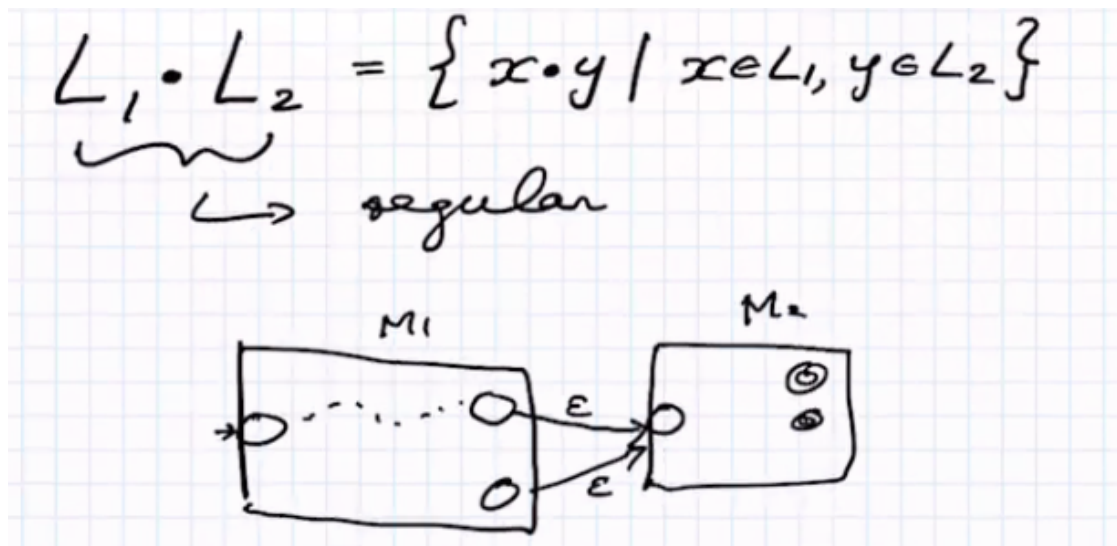 L₁ • L₂ = { x•y | x∈L₁, y∈L₂ }
regular
M₁ M₂
ε
ε